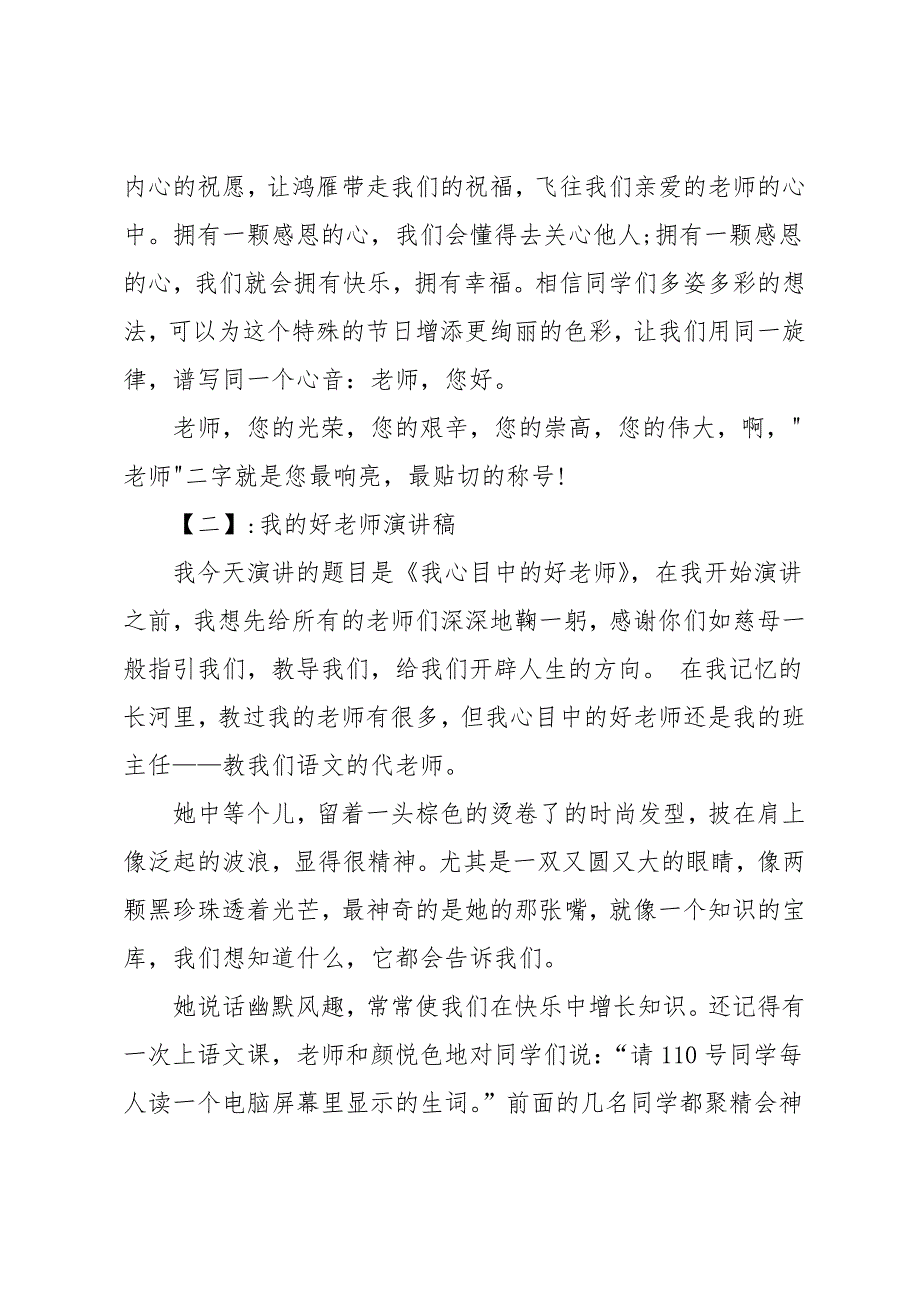 内心的祝愿，让鸿雁带走我们的祝福，飞往我们亲爱的老师的心
中。拥有一颗感恩的心，我们会懂得去关心他人;拥有一颗感恩
的心，我们就会拥有快乐，拥有幸福。相信同学们多姿多彩的想
法，可以为这个特殊的节日增添更绚丽的色彩，让我们用同一旋
律，谱写同一个心音：老师，您好。
老师，您的光荣，您的艰辛，您的崇高，您的伟大，啊，"
老师"二字就是您最响亮，最贴切的称号!
【二】:我的好老师演讲稿
我今天演讲的题目是《我心目中的好老师》，在我开始演讲
之前，我想先给所有的老师们深深地鞠一躬，感谢你们如慈母一
般指引我们，教导我们，给我们开辟人生的方向。 在我记忆的
长河里，教过我的老师有很多，但我心目中的好老师还是我的班
主任——教我们语文的代老师。
她中等个儿，留着一头棕色的烫卷了的时尚发型，披在肩上
像泛起的波浪，显得很精神。尤其是一双又圆又大的眼睛，像两
颗黑珍珠透着光芒，最神奇的是她的那张嘴，就像一个知识的宝
库，我们想知道什么，它都会告诉我们。
她说话幽默风趣，常常使我们在快乐中增长知识。还记得有
一次上语文课，老师和颜悦色地对同学们说：“请 110 号同学每
人读一个电脑屏幕里显示的生词。”前面的几名同学都聚精会神